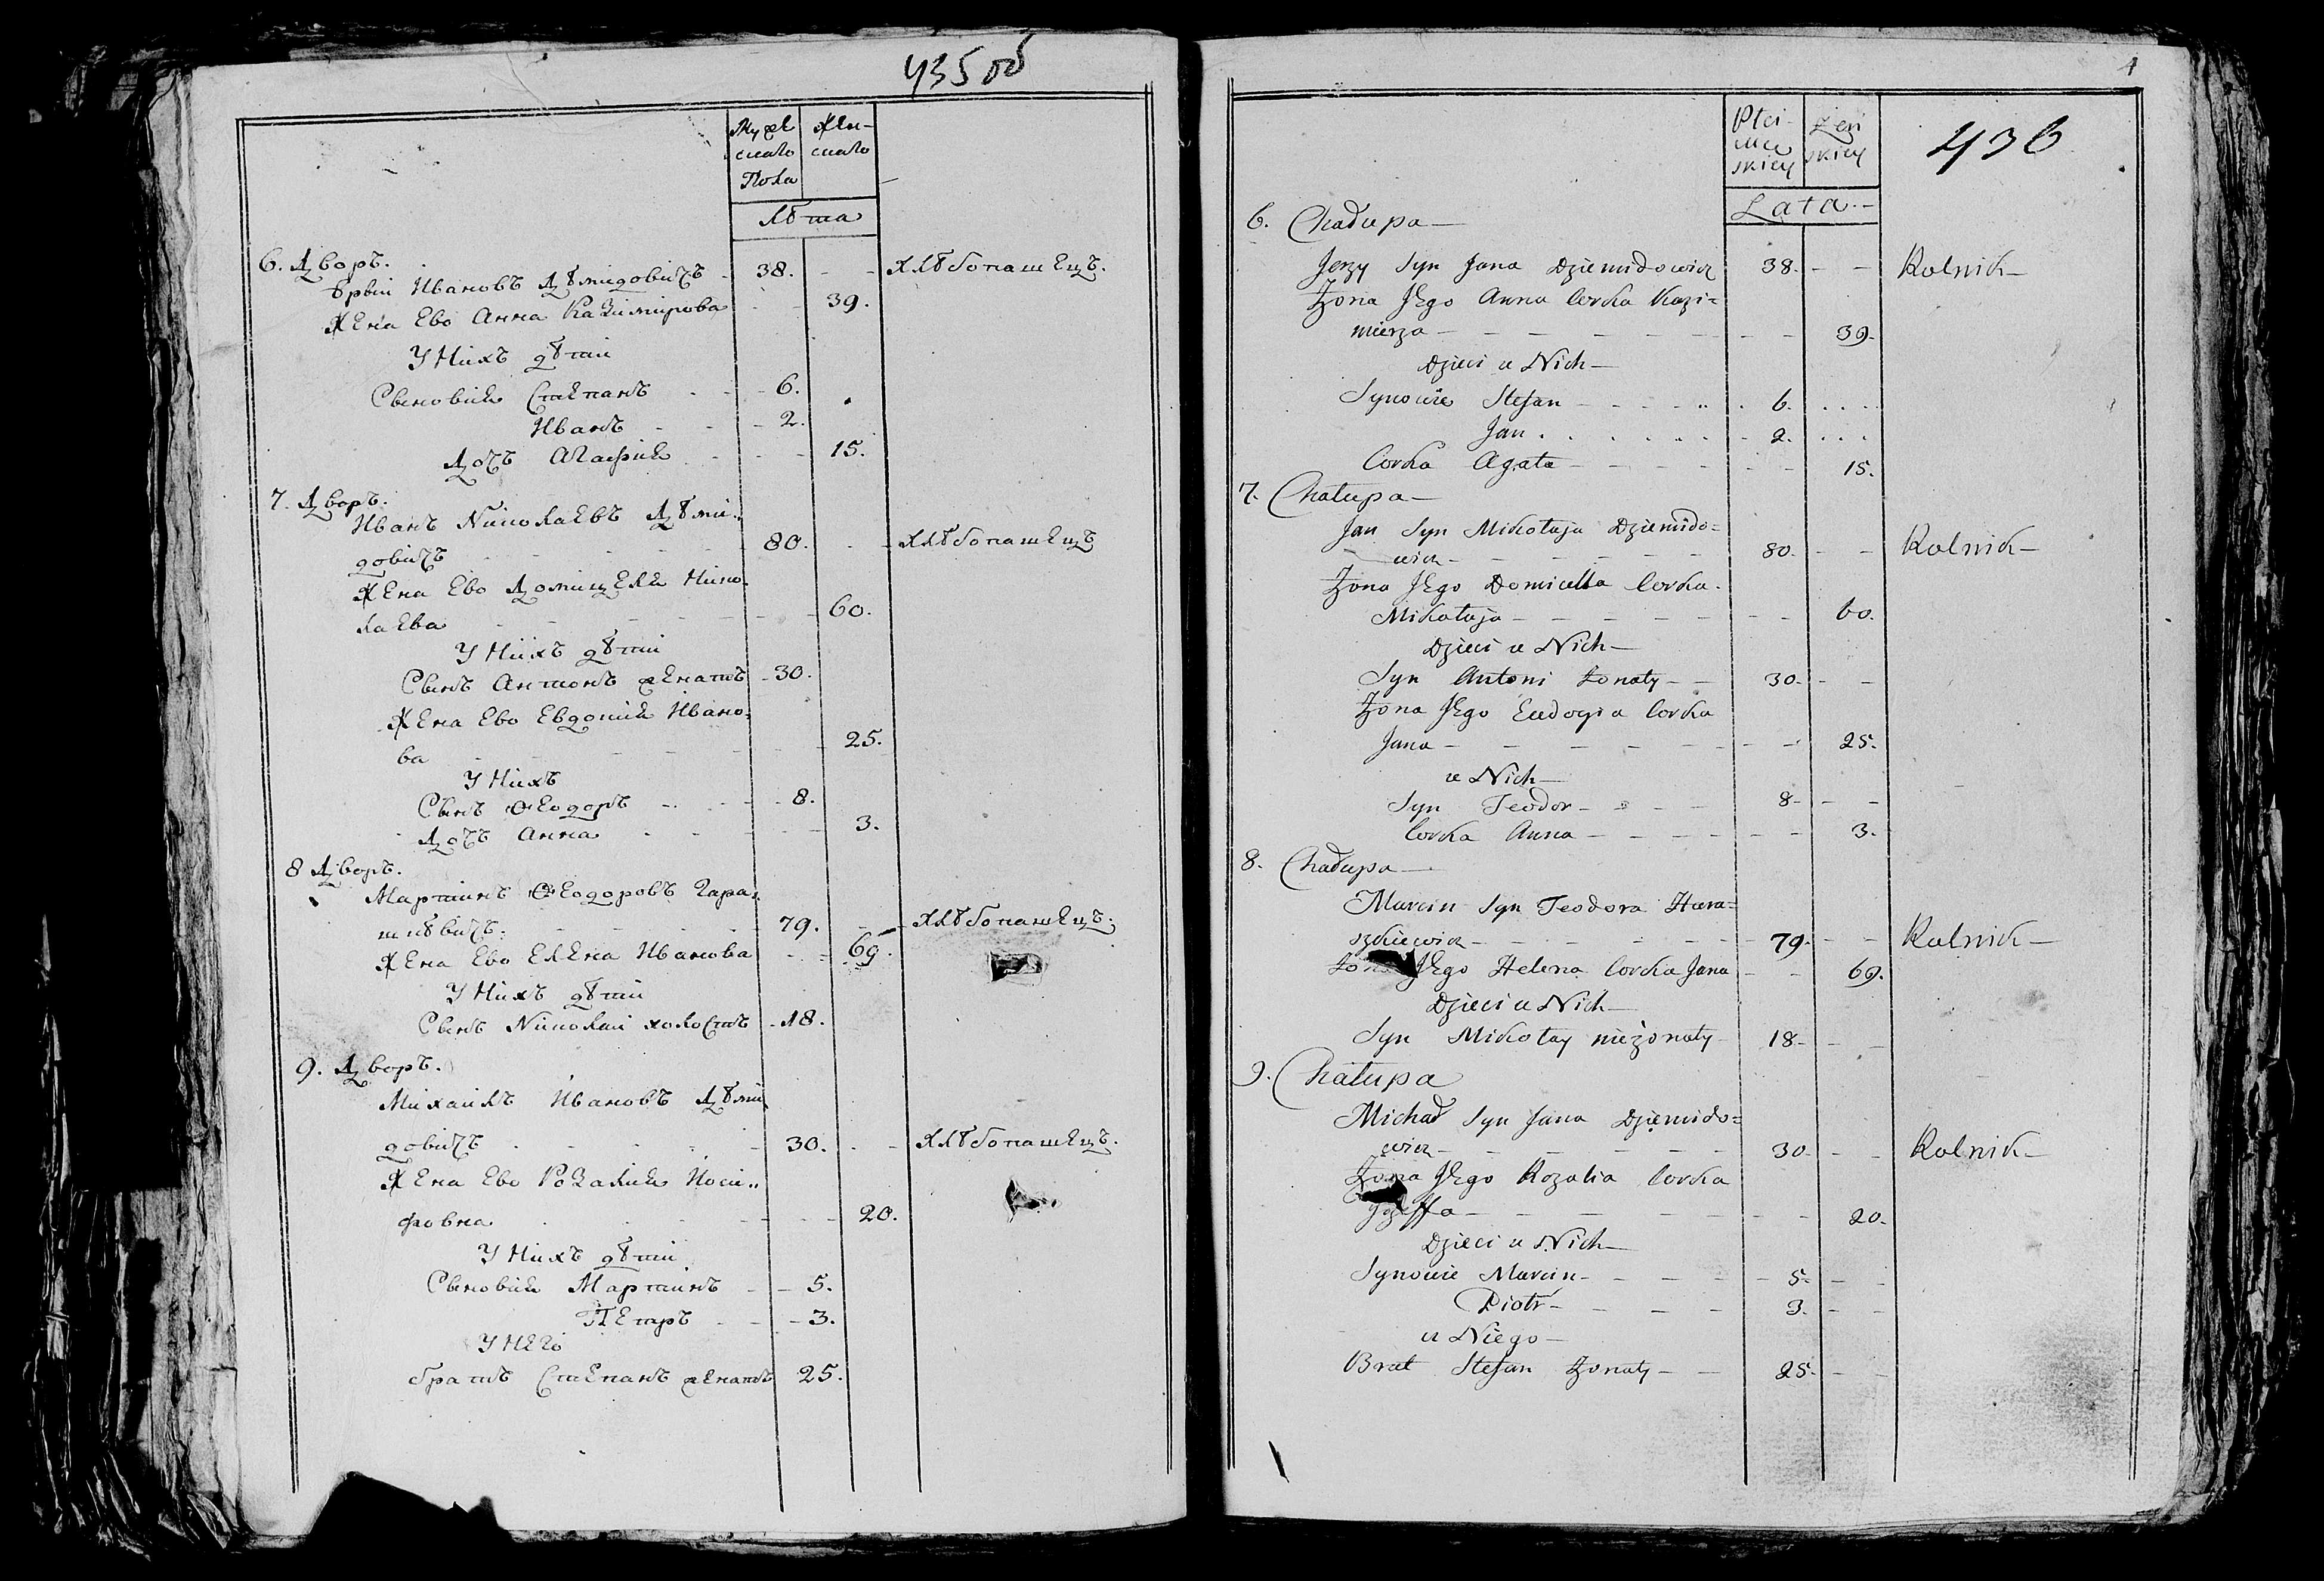 435 об
Мужескаго Пола
Женскаго
Лѣта
6. Дворъ.
Юрій Ивановъ Дѣмидовичъ - 38. - - Хлѣбопашецъ.
Жена Ево Анна Казимирова - - 39.
У Нихъ дѣти
Сыновия Степанъ - - - 6.
Иванъ - - - 2.
Дочь Агафия - - - 15.
7. Дворъ.
Иванъ Николаевъ Дѣми-
довичъ - - - 80. - - Хлѣбопашецъ
Жена Ево Домицеля Нико-
лаева - - - 60.
У Нихъ дѣти
Сынъ Антонъ женатъ - 30.
Жена Ево Евдокия Ивано-
ва - - - 25.
У Нихъ
Сынъ Ѳеодоръ - - - 8.
Дочь Анна - - - 3.
8 Дворъ.
Мартинъ Ѳеодоровъ Гара-
шкѣвичъ. - - - 79. - - Хлѣбопашецъ.
Жена Ево Елена Иванова - - 69.
У Нихъ дѣти
Сынъ Николай холостъ - 18.
9. Дворъ.
Михаилъ Ивановъ Дѣми
довичъ - - - 30. - - Хлѣбопашецъ.
Жена Ево Розалия Иоси-
фовна - - - 20.
У Нихъ дѣти
Сыновия Мартинъ - - 5.
Петръ - - - 3.
У Него
братъ Степанъ женатъ 25.
4
436
Płci męskiey
żeńskiey
Lata -
6. Chałupa -
Jerzy Syn Jana Dziemidowicz 38. - - Rolnik -
Żona Jego Anna Corka Kazi=
mierza - - - 39.
Dzieci u Nich -
Synowie Stefan - - - 6. . . .
Jan . . . . - 2. . . .
Corka Agata - - - 15.
7. Chałupa -
Jan Syn Mikołaja Dziemido=
wicz - - - 80. - - Rolnik -
Żona Jego Domicella Corka
Mikołaja - - - 60.
Dzieci u Nich -
Syn Antoni żonaty - - 30. - -
Żona Jego Eudogia Corka
Jana - - - 25.
u Nich -
Syn Teodor - - - 8 - - -
Corka Anna - - - 3.
8. Chałupa -
Marcin Syn Teodora Hara=
szkiewicz - - - 79. - - Rolnik -
Żona Jego Helena Corka Jana - - 69.
Dzieci u Nich -
Syn Mikołay nieżonaty - 18 - - -
9. Chałupa
Michał Syn Jana Dziemido=
wicz - - - 30. - - Rolnik -
Żona Jego Rozalia Corka
Jozeffa - - - 20.
Dzieci u Nich -
Synowie Marcin - - - 5. - -
Piotr - - - 3. - -
u Niego -
Brat Stefan żonaty - - 25. - -